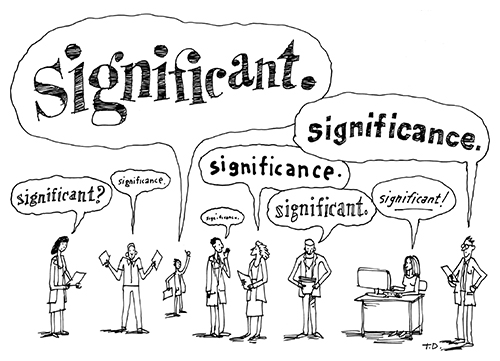 Significant.
significance.
significance.
significant?
significance.
significance.
significant.
significant!
T.D.